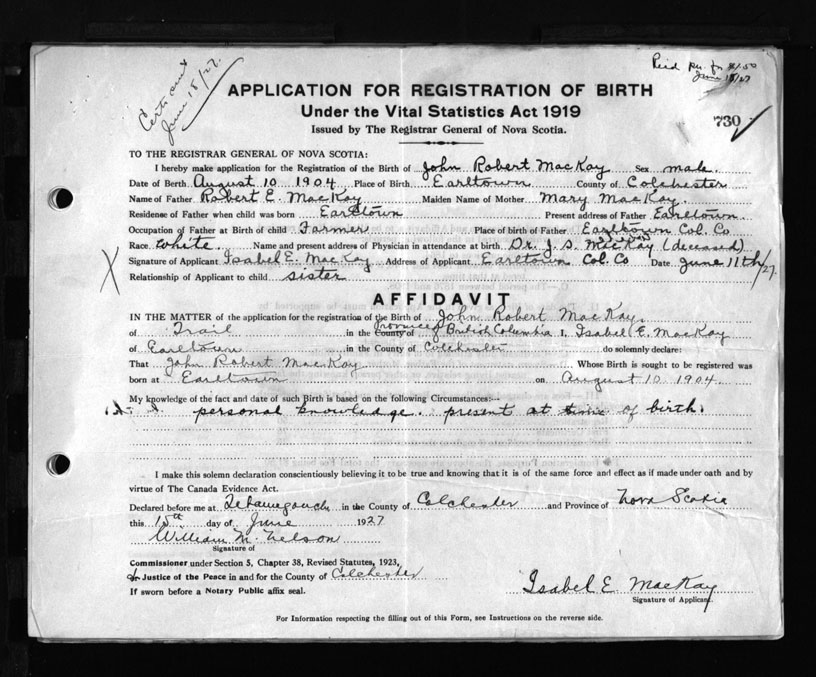 Certs and
June 15/27.
Reid Ru. fr $1.50
June 18/27
APPLICATION FOR REGISTRATION OF BIRTH
Under the Vital Statistics Act 1919
730
Issued by The Registrar General of Nova Scotia.
TO THE REGISTRAR GENERAL OF NOVA SCOTIA:
I hereby make application for the Registration of the Birth of John Robert MacKay Sex male
Date of Berth August 10 1904 Place of Birth Earltown County of Colchester
Name of Father Robert E. MacKay Maiden Name of Mother Mary MacKay.
Residense of Father when child was born Earltown Present address of Father Earltown.
Occupation of Father at Birth of child Farmer Place of birth of Father Earltown Col. Co
Race white. Name and present address of Physician in attendance at birth Dr. J. S. MacKay (deceased)
Signature of Applicant Isabel E. MacKay Address of Applicant Earltown Col. Co Date June 11th/27.
Relationship of Applicant to child sister
AFFIDAVIT
IN THE MATTER of the application for the registration of the Birth of John Robert MacKay.
of Trail in the Province of County of British Columbia I, Isabel E. MacKay
of Earltown in the County of Colchester do solemnly declare:
That John Robert MacKay Whose Birth is sought to be registered was
born at Earltown on August 10 1904.
My knowledge of the fact and date of such Birth is based on the following Circumstances:—
personal knowledge. present at time of birth.
I make this solemn declaration conscientiously believing it to be true and knowing that it is of the same force and effect as if made under oath and by
virtue of The Canada Evidence Act.
Declared before me at Tatamagouche in the County of Colchester and Province of Nova Scotia
this 15th day of June 1927
William M. Nelson
Signature of
Commissioner under Section 5, Chapter 38, Revised Statutes, 1923,
or Justice of the Peace in and for the County of Colchester
If sworn before a Notary Public affix seal.
Isabel E. MacKay
Signature of Applicant
For Information respecting the filling out of this Form, see Instructions on the reverse side.